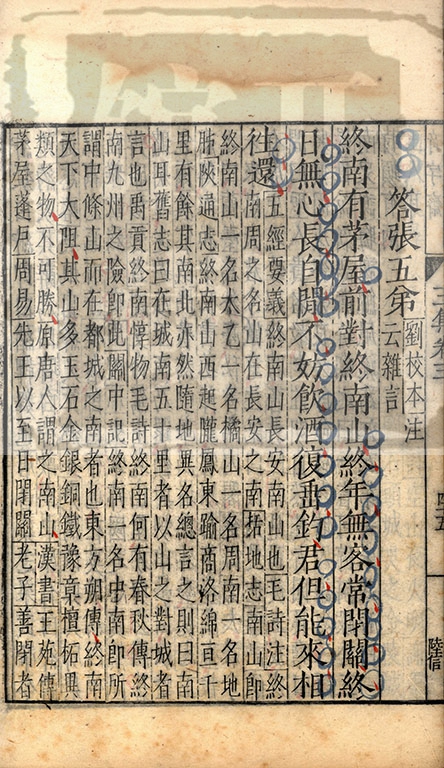 答張五弟 劉校本注
云雜言
終南有茅屋前對終南山終年無客常閉關終
日無心長自閒不妨飲酒復垂釣君但能來相
往還 五經要義終南山長安南山也毛詩注終
南周之名山在長安之南括地志南山即
終南山一名太乙一名橘山一名周南一名地
肺陝通志終南山西起隴鳳東踰商洛綿亘千
里有餘其南北亦然隨地異名總言之則曰南
山耳舊志曰在城南五十里者以山之對城者
言也禹貢終南惇物毛詩終南何有春秋傳終
南九州之險即此關中記終南一名中南即所
謂中條山而在都城之南者也東方朔傳終南
天下大阻其山多玉石金銀銅鐵豫章檀柘異
類之物不可勝原唐人謂之南山漢書王傳
茅屋蓬戶周易先王以至日閉關老子善閉者
陸信